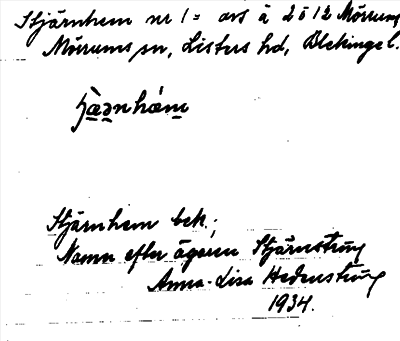 Stjärnhem nr 1 = avs å 2 o 12 Mörrum,
Mörrums sn, Listers hd, Blekinge l.
Stjärnhem bek.;
Namn efter ägaren Stjärnström
Anna-Lisa Hedenström
1934.